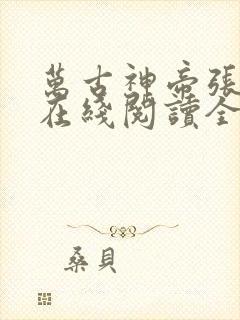 萬古神帝張
在綫閱讀全
桑貝